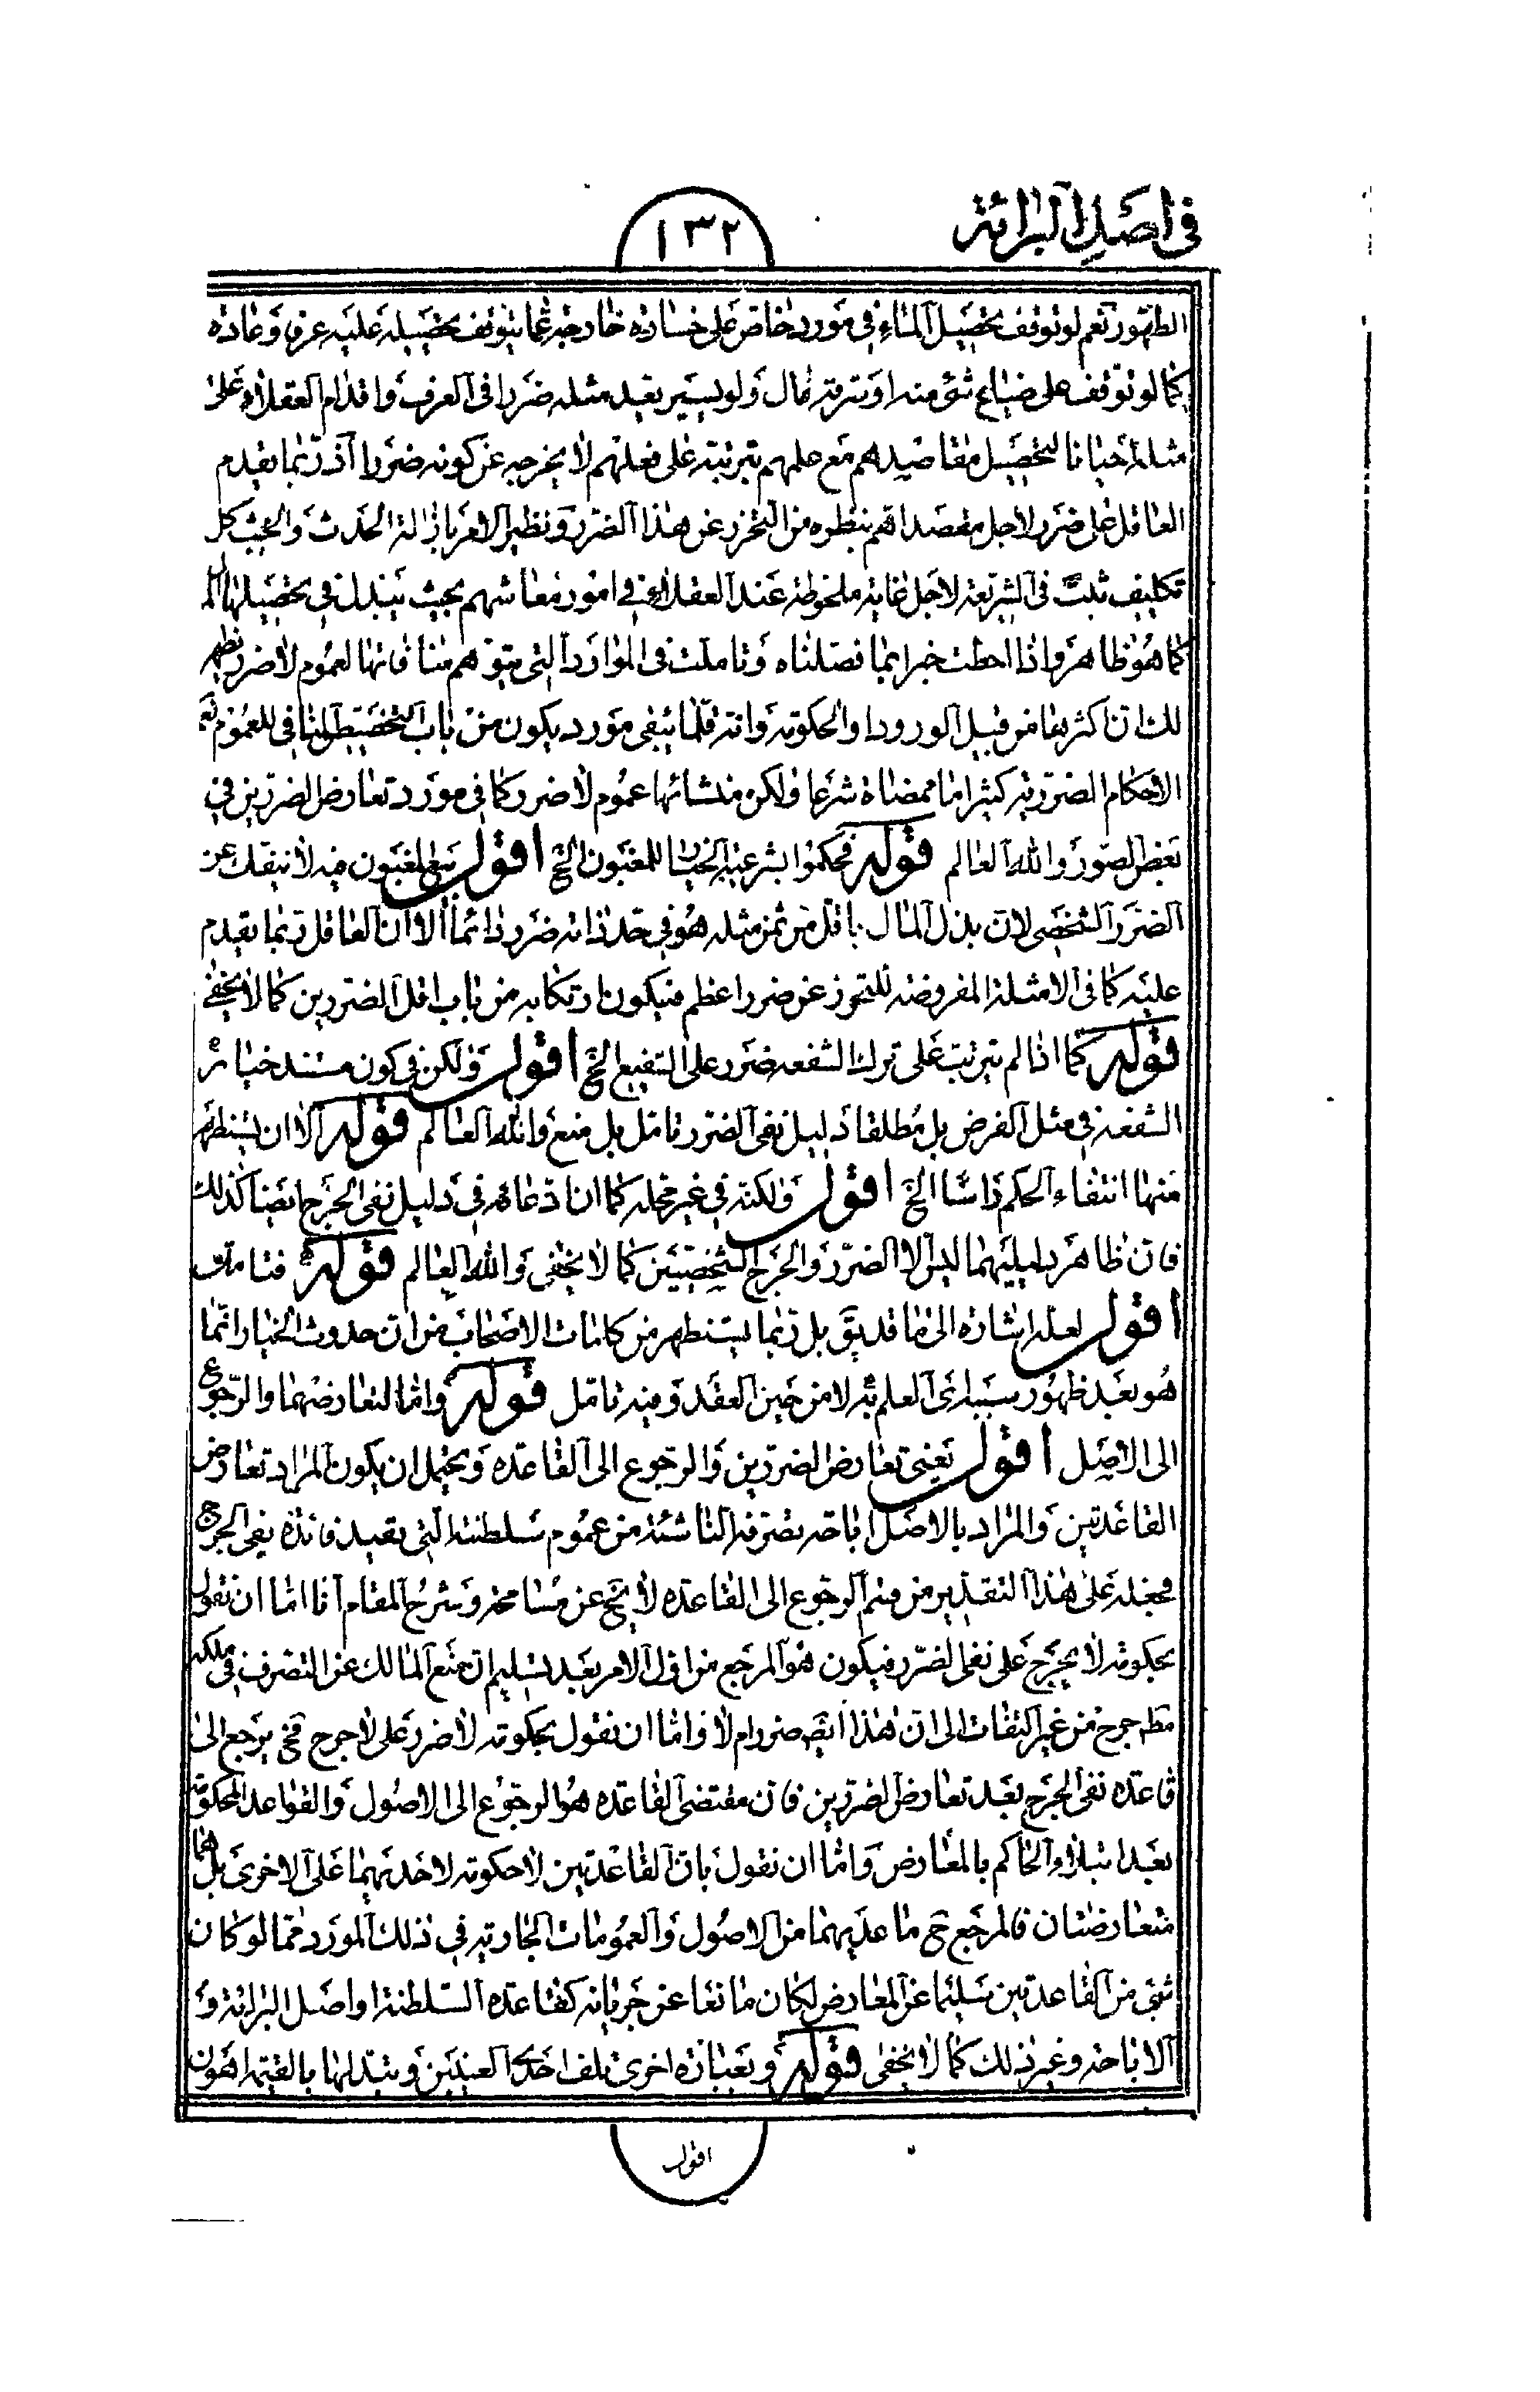 في اصل البرائة
١٣٢
الطهور نعم لو توقف تحصيل الماء في مورد خاص على خسارة خارجة عما يتوقف تحصيله عليه عرفا وعادة
كما لو توقف على ضياع شئ منه او سرقة مال ولو يسير يعد مثله ضررا في العرف واقدام العقلاء على
مثله احيانا لتحصيل مقاصدهم مع علمهم بترتبه على فعلهم لا يخرجه عن كونه ضررا اذ ربما يقدم
العاقل على ضرر لاجل مقصد اهم بنظره من التحرز عن هذا الضرر ونظير الامر بازالة الحدث والخبث كل
تكليف ثبت في الشريعة لاجل غاية ملحوظة عند العقلاء في امور معاشهم بحيث يبذل في تحصيلها المال
كما هو ظاهر واذا احطت خبرا بما فصلناه وتاملت في الموارد التي يتوهم منافاتها لعموم لا ضرر يظهر
لك ان اكثرها من قبيل الورود او الحكومة وانه قلما يبقى مورد يكون من باب التخصيص المنافي للعموم نعم
الاحكام الضررية كثيرا ما ممضاة شرعا ولكن منشائها عموم لا ضرر كما في مورد تعارض الضررين في
بعض الصور والله العالم قوله فحكموا بشرعية الخيار للمغبون الخ اقول بيع المغبون فيه لا ينفك عن
الضرر الشخصي لان بذل المال باقل من ثمن مثله هو في حد ذاته ضرر دائما الا ان العاقل ربما يقدم
عليه كما في الامثلة المفروضة للتحرز عن ضرر اعظم فيكون ارتكابه من باب اقل الضررين كما لا يخفى
قوله كما اذا لم يترتب على ترك الشفعة ضرر على الشفيع الخ اقول ولكن في كون مستند خيار
الشفعة في مثل الفرض بل مطلقا دليل نفي الضرر تامل بل منع والله العالم قوله الا ان يستظهر
منها انتفاء الحكم راسا الخ اقول ولكنه في غير محله كما ان ادعائه في دليل نفي الحرج ايضا كذلك
فان ظاهر دليليهما ليس الا الضرر والحرج الشخصيين كما لا يخفى والله العالم قوله فتامل
اقول لعله اشارة الى ما قد يق بل ربما يستظهر من كلمات الاصحاب من ان حدوث الخيار انما
هو بعد ظهور سببه اى العلم به لا من حين العقد وفيه تامل قوله واما لتعارضهما والرجوع
الى الاصل اقول يعني تعارض الضررين والرجوع الى القاعدة ويحتمل ان يكون المراد تعارض
القاعدتين والمراد بالاصل اباحة تصرفه الناشئة من عموم سلطنته التي يفيد فائدة نفي الحرج
فجعله على هذا التقدير من قسم الرجوع الى القاعدة لا يخ عن مسامحة وشرح المقام انا اما ان نقول
بحكومة لا حرج على نفي الضرر فيكون هو المرجع من اول الامر بعد تسليم ان منع المالك عن التصرف في ملكه
مطـ حرج من غير التفات الى ان هذا ايضـ ضرر ام لا واما ان نقول بحكومة لا ضرر على لا حرج فح يرجع الى
قاعدة نفي الحرج بعد تعارض الضررين فان مقتضى القاعدة هو الرجوع الى الاصول والقواعد المحكومة
بعد ابتلاء الحاكم بالمعارض واما ان نقول بان القاعدتين لا حكومة لاحديهما على الاخرى بل هما
متعارضتان فالمرجع ح ما عديهما من الاصول والعمومات الجارية في ذلك المورد مما لو كان
شئ من القاعدتين سليما عن المعارض لكان مانعا عن جريانه كقاعدة السلطنة او اصل البرائة و
الاباحة وغير ذلك كما لا يخفى قوله وبعبارة اخرى تلف احدى العينين وتبدلها بالقيمة اهون
اقول